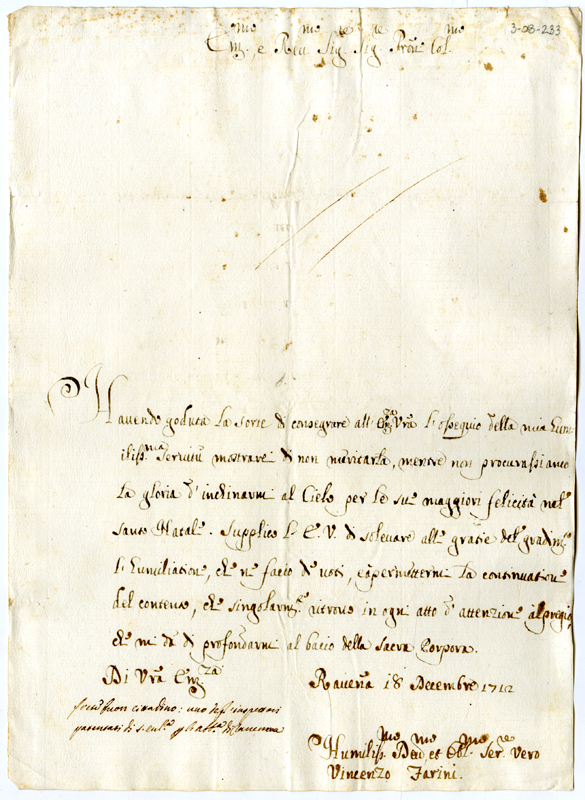 3-08-233
Em.mo, e Reu.mo Sig.re Sig.re Pron Col.mo
Hauendo goduta la sorte di consegrare all' Em.za Vra l'ossequio della mia hum
iliss.ma Seruitù mostrarei di non meritarla, mentre non procurassi anco
la gloria d'inchinarmi al Cielo per le sue maggiori felicità nel
santo Natale. Supplico l'E. V. di solleuare alle gratie del gradim.to
l'humiliatione, che ne facio de uoti, e permettermi la continuatione
del contento, che singolarm.te ritrouo in ogni atto d'attenzione al pregio,
che mi dà di profondarmi al bacio della Sacra Porpora.
Di Vra Em.za
Rauenna 18 Decembre 1712
buon cittadino: uno
di
Humiliss.mo Deu.mo et Obl.mo Ser.re Vero
Vincenzo Farini.